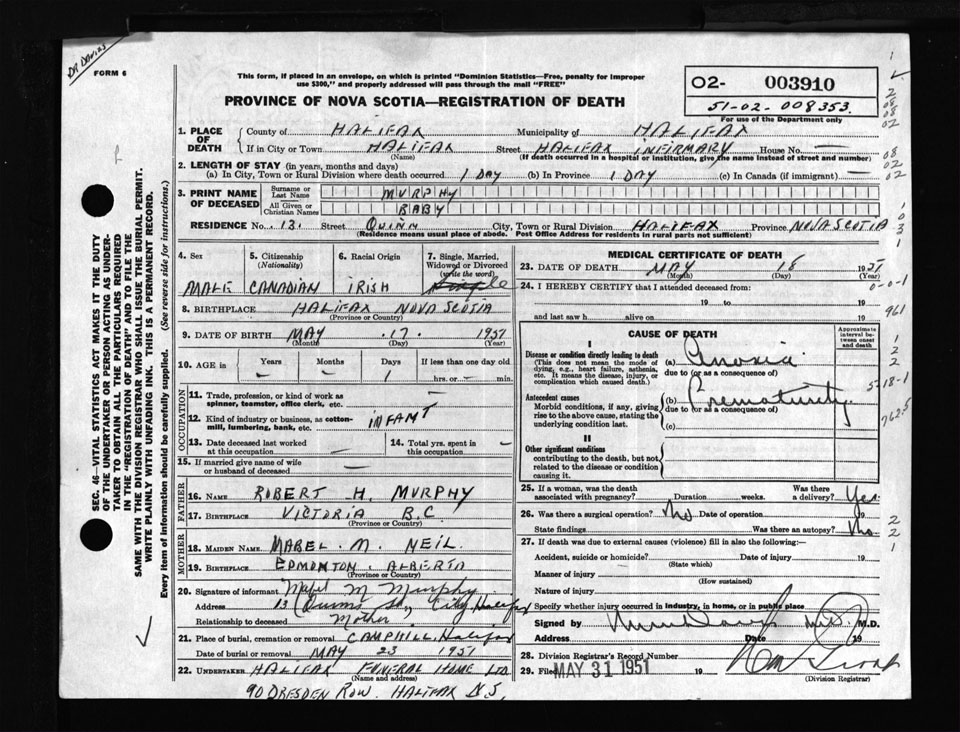 DR DAVIES
FORM 6
This form, if placed in an envelope, on which is printed "Dominion Statistics—Free, penalty for improper
use $300," and properly addressed will pass through the mail "FREE"
PROVINCE OF NOVA SCOTIA—REGISTRATION OF DEATH
02- 003910
51-02-008353
For use of the Department only
1. PLACE OF DEATH
County of HALIFAX Municipality of HALIFAX
If in City or Town HALIFAX Street HALIFAX INFIRMARY House No. —
(Name) (If death occurred in a hospital or institution, give the name instead of street and number)
2. LENGTH OF STAY (in years, months and days)
(a) In City, Town or Rural Division where death occurred 1 DAY (b) In Province 1 DAY (c) In Canada (if immigrant) —
3. PRINT NAME OF DECEASED
Surname or Last Name MURPHY
All Given or Christian Names BABY
RESIDENCE No. 13. Street QUINN City, Town or Rural Division HALIFAX Province NOVA SCOTIA
(Residence means usual place of abode. Post Office Address for residents in rural parts not sufficient)
4. Sex 5. Citizenship (Nationality) 6. Racial Origin 7. Single, Married, Widowed or Divorced (write the word)
MALE CANADIAN IRISH Single
8. BIRTHPLACE HALIFAX NOVA SCOTIA
(Province or Country)
9. DATE OF BIRTH MAY 17. 1951
(Month) (Day) (Year)
10. AGE in Years Months Days If less than one day old
— — 1 hrs. or — min.
OCCUPATION
11. Trade, profession, or kind of work as
spinner, teamster, office clerk, etc. —
12. Kind of industry or business, as cotton-
mill, lumbering, bank, etc. INFANT
13. Date deceased last worked
at this occupation — 14. Total yrs. spent in
this occupation —
15. If married give name of wife
or husband of deceased —
FATHER
16. NAME ROBERT H. MURPHY
17. BIRTHPLACE VICTORIA B.C.
(Province or Country)
MOTHER
18. MAIDEN NAME MABEL. M. NEIL.
19. BIRTHPLACE EDMONTON. ALBERTA
(Province or Country)
20. Signature of informant Mabel M Murphy
Address 13 Quinns St, City Halifax
Relationship to deceased Mother
21. Place of burial, cremation or removal CAMPHILL. Halifax
Date of burial or removal MAY 23 1951
22. UNDERTAKER HALIFAX FUNERAL HOME LTD
(Name and address)
90 DRESDEN ROW. HALIFAX N.S.
MEDICAL CERTIFICATE OF DEATH
23. DATE OF DEATH MAY 18 1951
(Month) (Day)
24. I HEREBY CERTIFY that I attended deceased from:
19 to 19
and last saw h alive on 19
CAUSE OF DEATH
Approximate interval between onset and death
I
Disease or condition directly leading to death
(This does not mean the mode of
dying, e.g., heart failure, asthenia,
etc. It means the disease, injury, or
complication which caused death.)
(a) Anoxia
due to (or as a consequence of)
Antecedent causes
Morbid conditions, if any, giving
rise to the above cause, stating the
underlying condition last.
(b) Prematurity
due to (or as a consequence of)
(c)
II
Other significant conditions
contributing to the death, but not
related to the disease or condition
causing it.
25. If a woman, was the death
associated with pregnancy? Duration weeks. Was there
a delivery? Yes
26. Was there a surgical operation? No Date of operation 19
State findings Was there an autopsy? No
27. If death was due to external causes (violence) fill in also the following:—
Accident, suicide or homicide? Date of injury 19
(State which)
Manner of injury
(How sustained)
Nature of injury
Specify whether injury occurred in industry, in home, or in public place
Signed by M.D.
Address Date 19
28. Division Registrar's Record Number
29. Filed MAY 31 1951 19
(Division Registrar)
SEC. 46—VITAL STATISTICS ACT MAKES IT THE DUTY
OF THE UNDERTAKER OR PERSON ACTING AS UNDER-
TAKER TO OBTAIN ALL THE PARTICULARS REQUIRED
IN THE "REGISTRATION OF DEATH" AND TO FILE THE
SAME WITH THE DIVISION REGISTRAR WHO SHALL ISSUE THE BURIAL PERMIT.
WRITE PLAINLY WITH UNFADING INK. THIS IS A PERMANENT RECORD.
Every item of Information should be carefully supplied. (See reverse side for instructions.)
0-0-1
961
5-18-1
7625